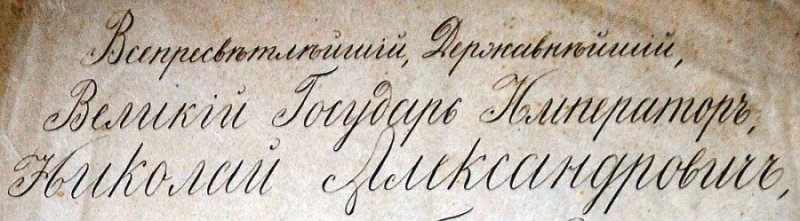 Всепресвѣтлѣйшій, Державнѣйшій,
Великій Государь Императоръ,
Николай Александровичъ,